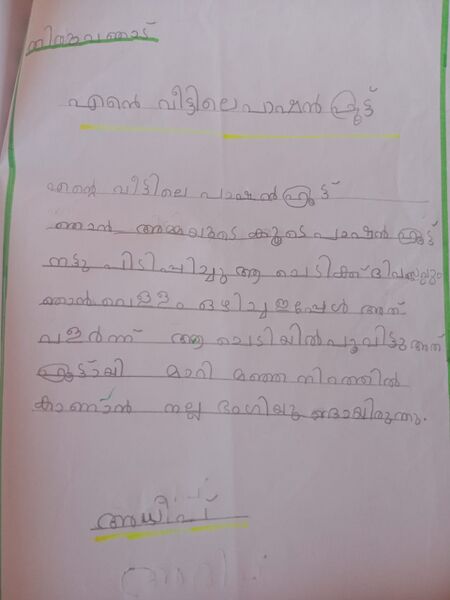 എന്റെ വീട്ടിലെ പാഷൻ ഫ്രൂട്ട്
എന്റെ വീട്ടിലെ പാഷൻ ഫ്രൂട്ട്
ഞാൻ അമ്മയുടെ കൂടെ പാഷൻ ഫ്രൂട്ട്
നട്ടു പിടിപ്പിച്ചു ആ ചെടിക്ക് ദിവസവും
ഞാൻ വെള്ളം ഒഴിച്ചു ഇപ്പോൾ അത്
വളർന്ന് ആ ചെടിയിൽ പൂവിട്ടു അത്
ഫ്രൂട്ടായി മാറി മഞ്ഞ നിറത്തിൽ
കാണാൻ നല്ല ഭംഗിയു ണ്ടായിരുന്നു.